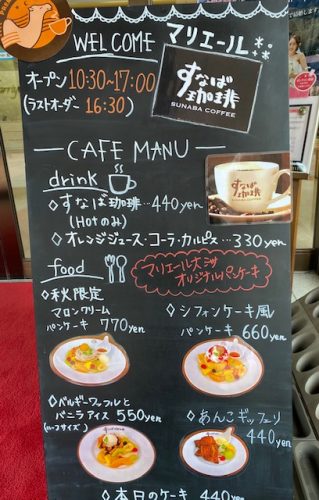 WELCOME マリエール
オープン 10:30~17:00
(ラストオーダー 16:30)
すなば珈琲
SUNABA COFFEE
CAFE MANU
drink
◇すなば珈琲…440yen
(Hotのみ)
すなば珈琲
◇オレンジジュース・コーラ・カルピス…330yen
food
オリジナルパンケーキ
◇秋限定
マロンクリーム
パンケーキ 770yen
◇シフォンケーキ風
パンケーキ 660yen
◇ベルギーワッフルと
バニラアイス 550yen
(ハーフサイズ)
◇あんこギッフェリ
440yen
◇本日のケーキ 440yen